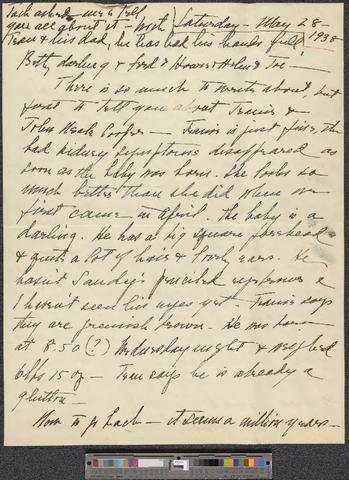 Jack asked me to tell
you all about it - most Saturday - May 28 -
Travis & his dad, he has had his hands full 1938
Betty darling & Fred & Howard Helen & Tre -
There is so much to write about but
first to tell you about Travis &
John Meek Cooper - Travis is just fine, the
bad kidney symptoms disappeared as
soon as the baby was born. She looks so
much better than she did when we
first came in April. The baby is a
darling. He has a big square forehead
& quite a lot of hair & lovely ears. He
hasn't Sandy's penciled eyebrows &
I haven't seen his eyes yet - Travis says
they are greenish brown. He was born
at 8:50 (?) Wednesday night & weighed
6 lbs 15 oz - Travis says he is already a
glutton -
Now to go back - it seems a million years -